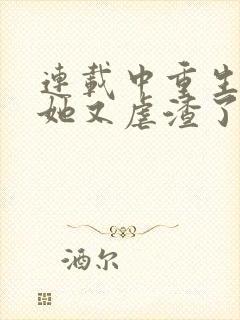 連載中重生
她又虐渣了
酒尔